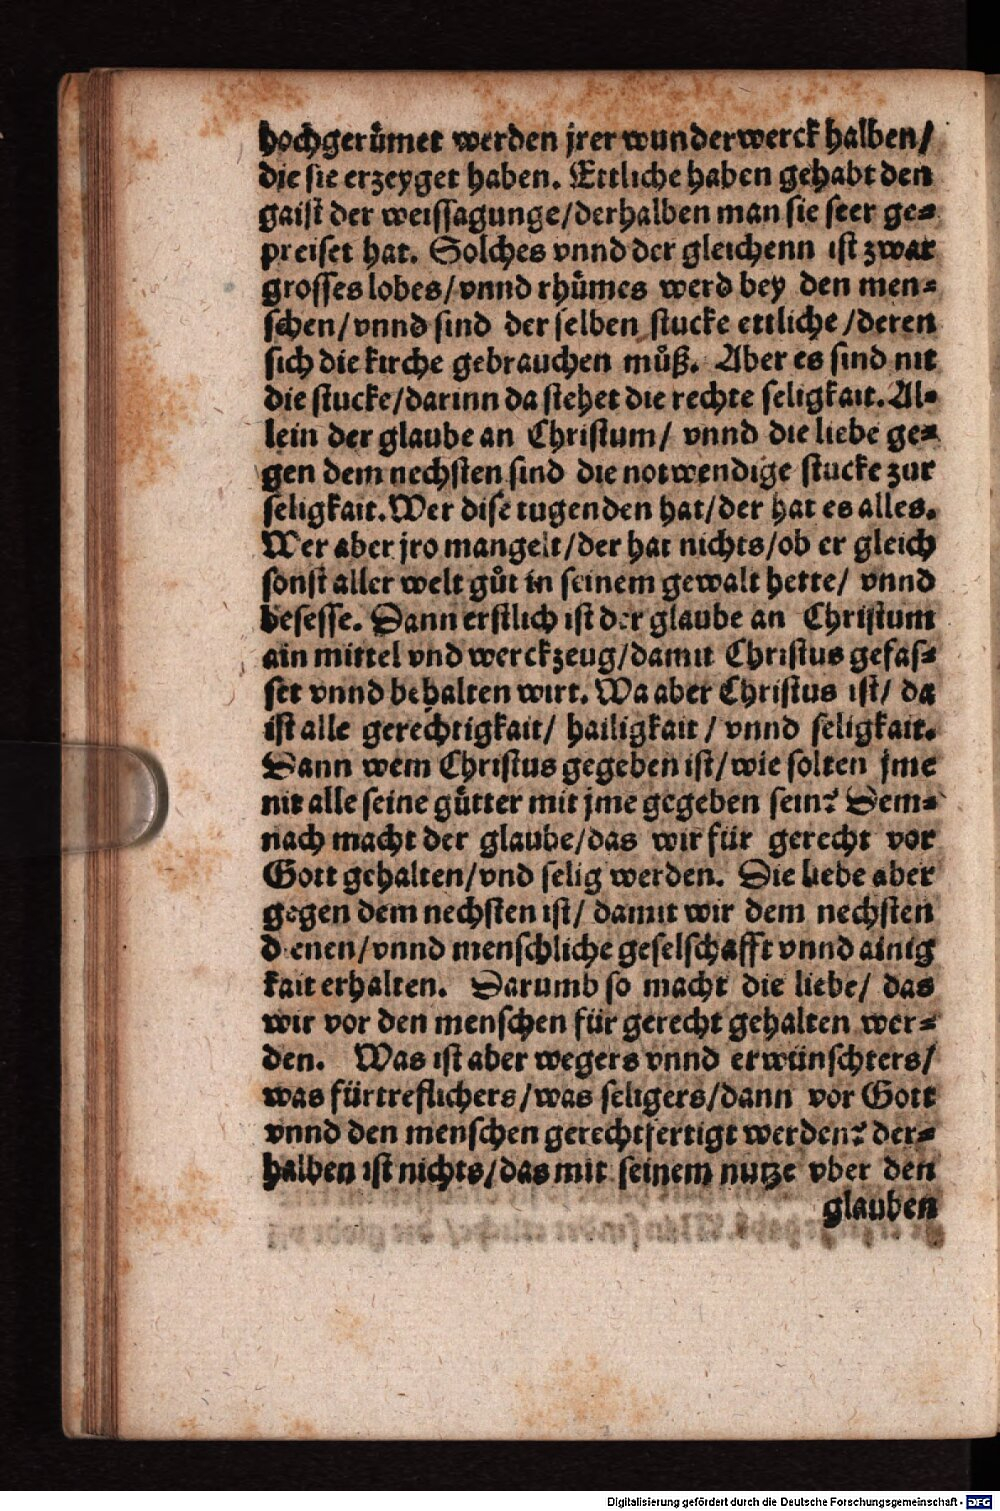 hochgerůmet werden jrer wunderwerck halben/
die sie erzeyget haben. Ettliche haben gehabt den
gaist der weissagunge/derhalben man sie seer ge=
preiset hat. Solches vnnd der gleichenn ist zwar
grosses lobes/vnnd rhůmes werd bey den men=
schen/vnnd sind der selben stucke ettliche/deren
sich die kirche gebrauchen můß. Aber es sind nit
die stucke/darinn da stehet die rechte seligkait. Al=
lein der glaube an Christum/ vnnd die liebe ge=
gen dem nechsten sind die notwendige stucke zur
seligkait. Wer dise tugenden hat/der hat es alles.
Wer aber jro mangelt/der hat nichts/ob er gleich
sonst aller welt gůt in seinem gewalt hette/ vnnd
besesse. Dann erstlich ist der glaube an Christum
ain mittel vnd werckzeug/damit Christus gefas=
set vnnd behalten wirt. Wa aber Christus ist/ da
ist alle gerechtigkait/ hailigkait/ vnnd seligkait.
Dann wem Christus gegeben ist/wie solten jme
nit alle seine gůtter mit jme gegeben sein? Dem=
nach macht der glaube/das wir für gerecht vor
Gott gehalten/vnd selig werden. Die liebe aber
gegen dem nechsten ist/ damit wir dem nechsten
dienen/vnnd menschliche geselschafft vnnd ainig
kait erhalten. Darumb so macht die liebe/ das
wir vor den menschen für gerecht gehalten wer=
den. Was ist aber wegers vnnd erwünschters/
was fürtreflichers/was seligers/dann vor Gott
vnnd den menschen gerechtfertigt werden? der=
halben ist nichts/das mit seinem nutze vber den
glauben
Digitalisierung gefördert durch die Deutsche Forschungsgemeinschaft - DFG